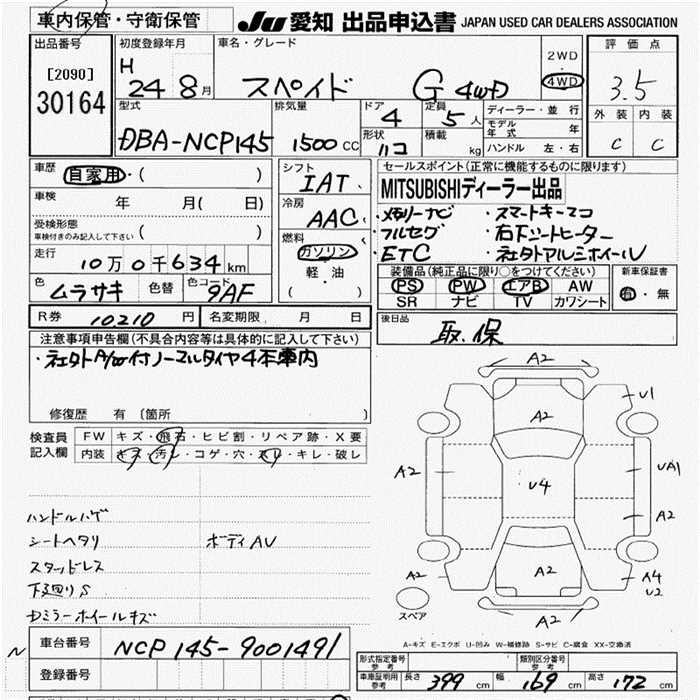 車内保管・守衛保管
JU 愛知 出品申込書 JAPAN USED CAR DEALERS ASSOCIATION
出品番号 初度登録年月 車名・グレード 評価点
[2090] H 2WD
30164 24 8月 スペイド G 4WD 4WD 3.5
型式 排気量 ドア 定員 ディーラー・並行 外装 内装
DBA-NCP145 1500cc 4 5人 モデル年式 年 C C
形状 ハコ 積載 kg ハンドル 左・右
車歴 自家用・( ) シフト IAT セールスポイント(正常に機能するものに限ります)
MITSUBISHIディーラー出品
車検 年 月( 日) 冷房 AAC
・メモリーナビ ・スマートキー2コ
受検形態 車検付きのみ記入して下さい ( )
・フルセグ ・右下シートヒーター
走行 10万0千634km 燃料 ガソリン・軽油 ( )
・ETC ・社外アルミホイール
色 ムラサキ 色替 色コード 9AF
装備品(純正品に限り○をつけてください) 新車保証書
PS PW エアB AW 有・無
SR ナビ TV カワシート
R券 10210円 名変期限 月 日
後日品 取.保
注意事項申告欄(不具合内容等は具体的に記入して下さい)
・社外A/W付ノーマルタイヤ4本車内
修復歴 有 〔箇所 〕
検査員記入欄 FW キズ・飛石・ヒビ割・リペア跡・X要
内装 キズ・汚レ・コゲ・穴・スレ・キレ・破レ
A2
A2
U1
A2
U4
UA1
A2
A2
A2
A4
U2
A2
スペア
ハンドルハゲ
シートヘタリ ボディAU
スタッドレス
下廻りS
Dミラーホイールキズ
A-キズ E-エクボ U-凹み W-補修跡 S-サビ C-腐食 XX-交換済
N 車台番号 NCP145-9001491
登録番号
形式指定番号 参考 類別区分番号 参考
車庫証明用 参考 長さ 399cm 幅 169cm 高さ 172cm